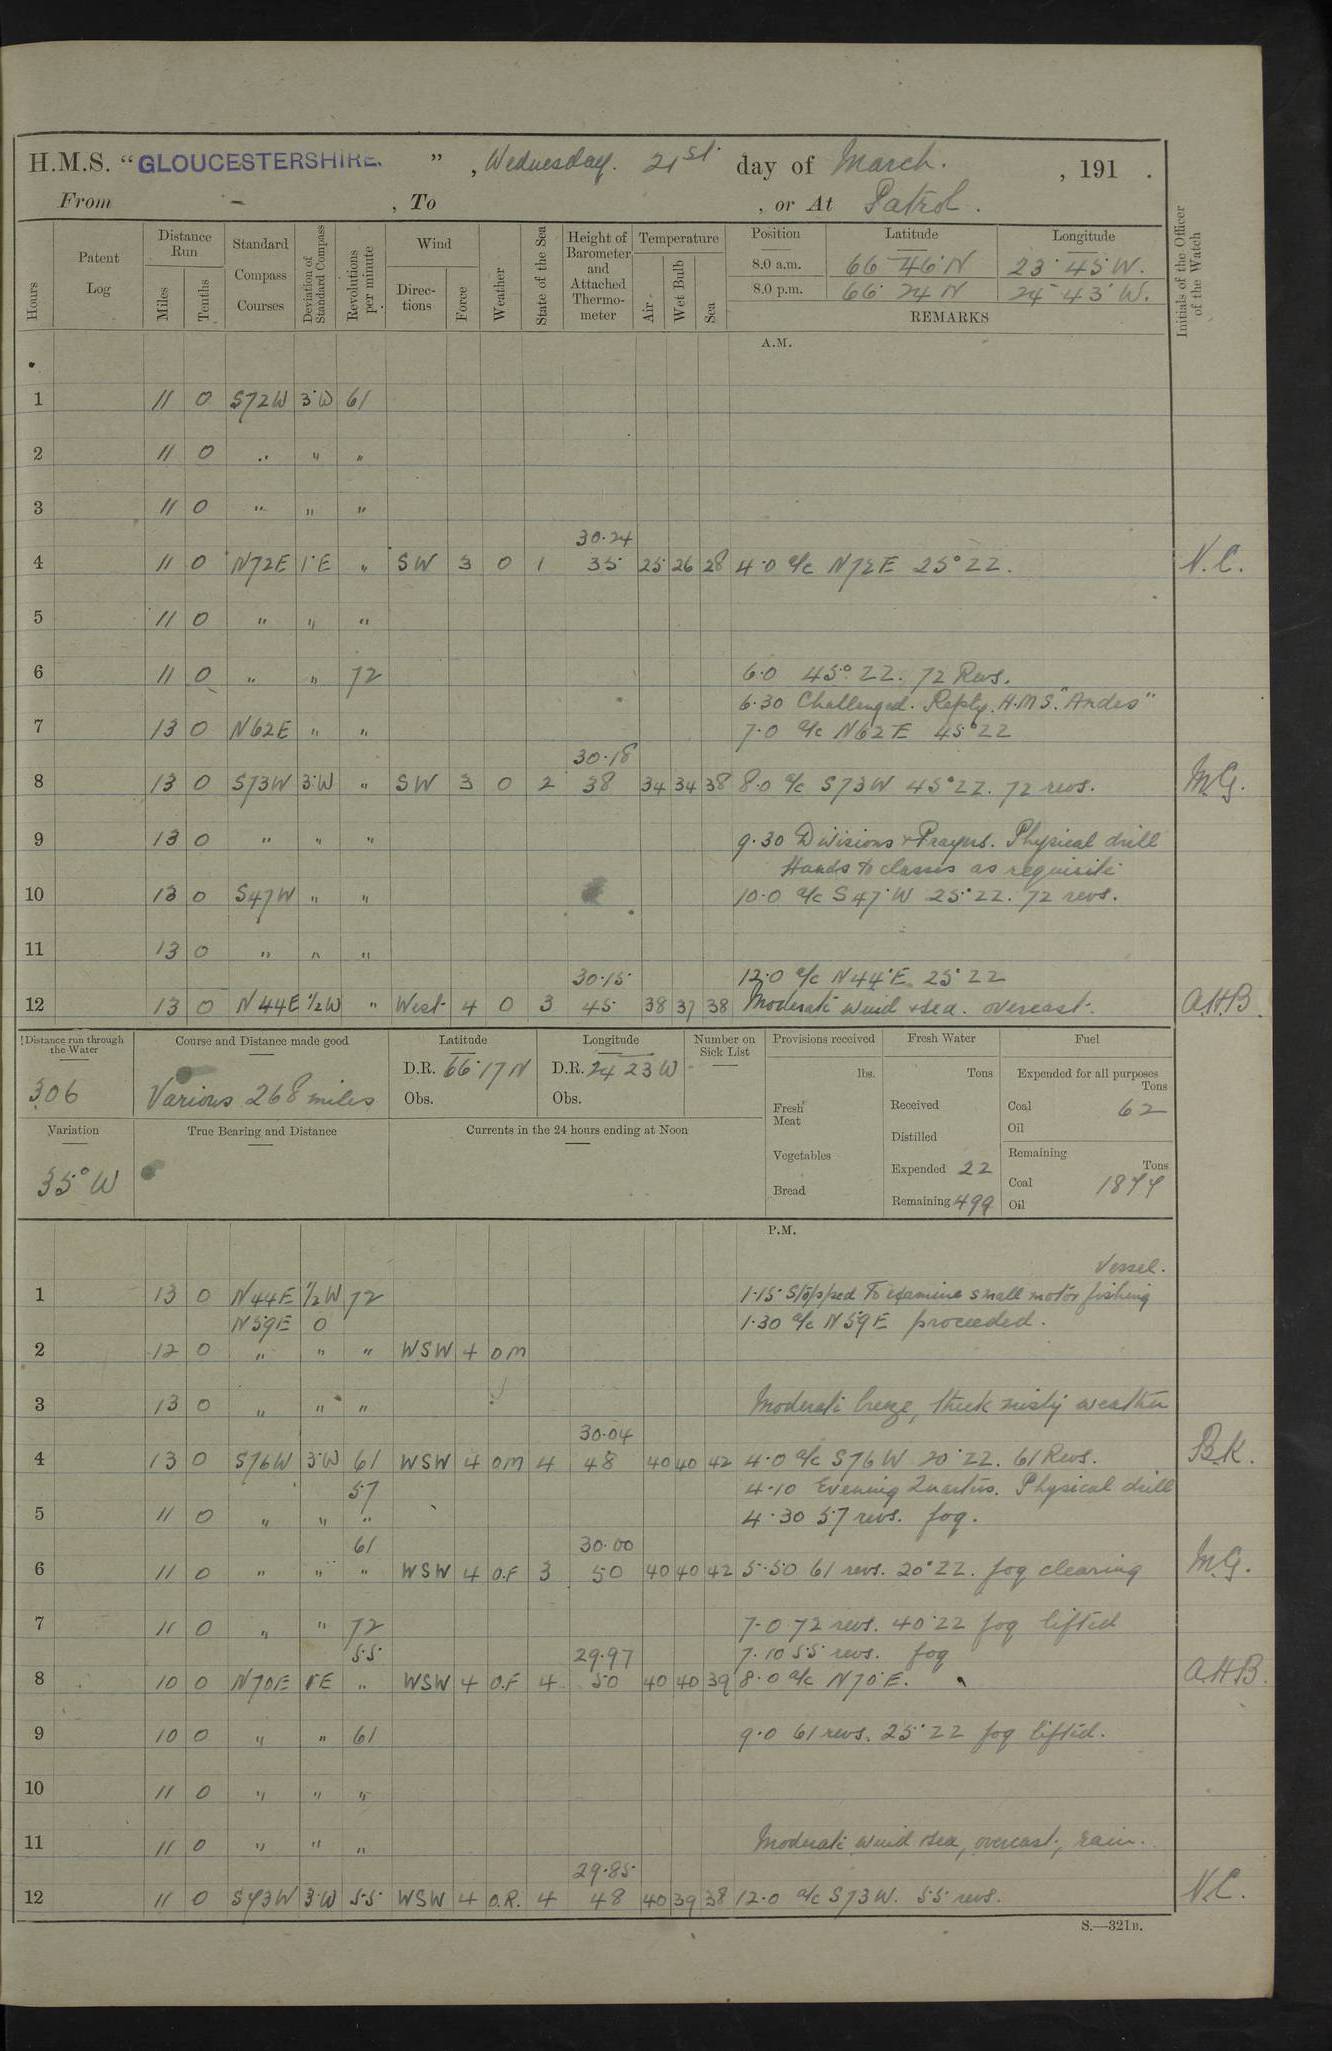 H.M.S. "GLOUCESTERSHIRE.", Wednesday. 21st. day of March. , 191 .
From - , To , or At Patrol.
Hours
Patent Log
Distance Run
Miles
Tenths
Standard Compass Courses
Deviation of Standard Compass
Revolutions per minute
Wind
Directions
Force
Weather
State of the Sea
Height of Barometer and Attached Thermometer
Temperature
Air
Wet Bulb
Sea
Position Latitude Longitude
8.0 a.m. 66° 46' N 23° 45' W.
8.0 p.m. 66° 24 N 24° 43' W.
REMARKS
Initials of the Officer of the Watch
A.M.
1 11 0 S72W 3°W 61
2 11 0 " " "
3 11 0 " " "
30.24
4 11 0 N72E 1°E " SW 3 0 1 35 25 26 28 4.0 a/c N72E 25° ZZ. N.C.
5 11 0 " " "
6 11 0 " " 72 6.0 45° ZZ. 72 Revs.
6.30 Challenged. Reply. H.M.S. "Andes"
7 13 0 N62E " " 7.0 a/c N62E 45° ZZ
30.18
8 13 0 S73W 3°W " SW 3 0 2 38 34 34 38 8.0 a/c S73W 45° ZZ. 72 revs. M.G.
9 13 0 " " " 9.30 Divisions & Prayers. Physical drill
Hands to classes as requisite
10 13 0 S47W " " 10.0 a/c S47°W 25° ZZ. 72 revs.
11 13 0 " " "
30.15 12.0 a/c N44°E 25° ZZ
12 13 0 N44E 1/2W " West 4 0 3 45 38 37 38 Moderate wind & sea. overcast. A.H.B.
Distance run through the Water
306
Course and Distance made good
Various 268 miles
Latitude
D.R. 66° 17 N
Obs.
Longitude
D.R. 24 23 W
Obs.
Number on Sick List
-
Provisions received
lbs.
Fresh Meat
Vegetables
Bread
Fresh Water
Tons
Received
Distilled
Expended 22
Remaining 499
Fuel
Expended for all purposes
Tons
Coal 62
Oil
Remaining
Tons
Coal 1844
Oil
Variation
35° W
True Bearing and Distance
Currents in the 24 hours ending at Noon
P.M.
Vessel.
1 13 0 N44E 1/2W 72 1.15 Stopped To examine small motor fishing
N59E 0 1.30 a/c N59E proceeded.
2 12 0 " " " WSW 4 O M
3 13 0 " " " Moderate breeze, thick misty weather
30.04
4 13 0 S76W 3°W 61 WSW 4 O M 4 48 40 40 42 4.0 a/c S76W 20° ZZ. 61 Revs. B.K.
57 4.10 Evening Quarters. Physical drill
5 11 0 " " " 4.30 57 revs. fog.
61 30.00
6 11 0 " " " WSW 4 O.F 3 50 40 40 42 5.50 61 revs. 20° ZZ. fog clearing M.G.
7 11 0 " " 72 7.0 72 revs. 40° ZZ fog lifted
55 29.97 7.10 55 revs. fog
8 10 0 N70E 1°E " WSW 4 O.F 4 50 40 40 39 8.0 a/c N70°E. A.H.B.
9 10 0 " " 61 9.0 61 revs. 25° ZZ fog lifted.
10 11 0 " " "
11 11 0 " " " Moderate wind & sea, overcast, rain.
29.85
12 11 0 S73W 3°W 55 WSW 4 O.R. 4 48 40 39 38 12.0 a/c S73W. 55 revs. N.C.
S.—321B.